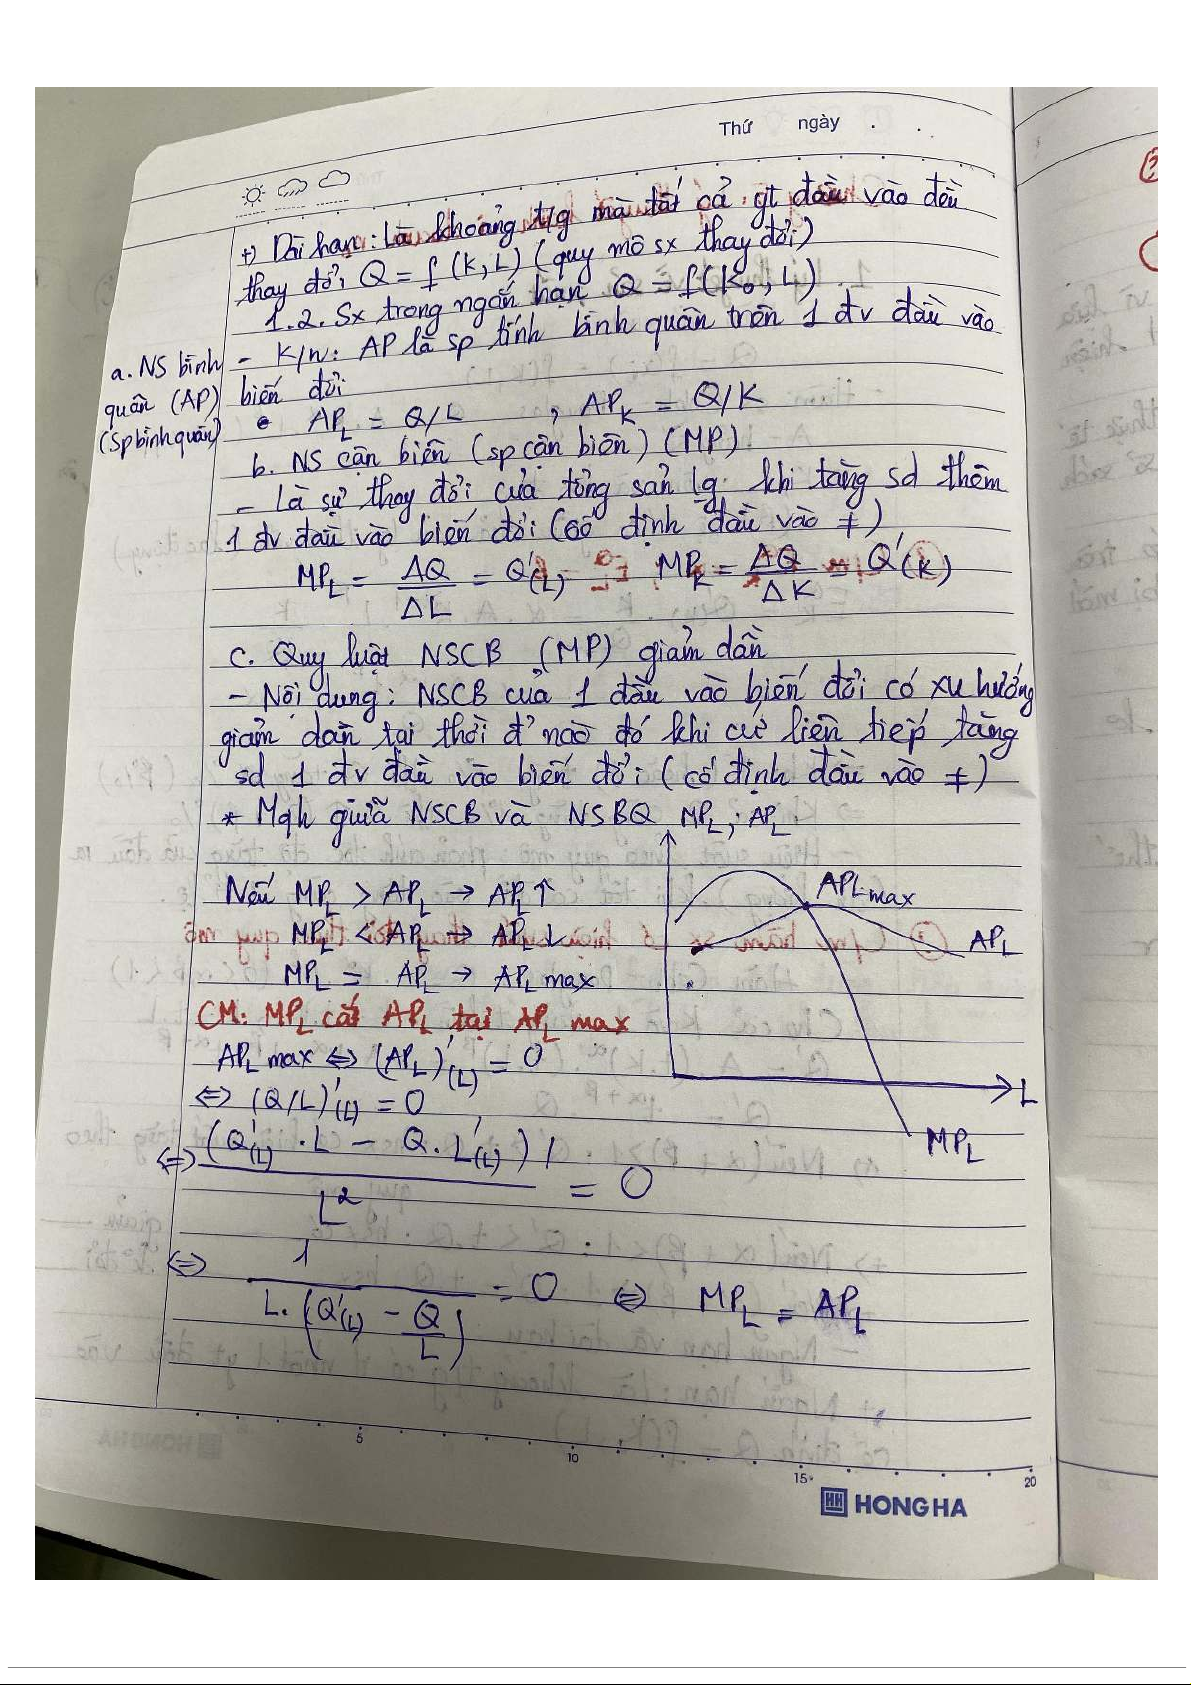 Thứ ngày
+) Dài hạn: Là khoảng t/g mà tất cả yt đầu vào đều
thay đổi Q = f (K, L) (quy mô sx thay đổi)
1.2. Sx trong ngắn hạn Q = f(K₀, L)
a. NS bình quân (AP) (Sp bình quân)
- K/n: AP là sp tính bình quân trên 1 đv đầu vào
biến đổi
• APL = Q/L , APK = Q/K
b. NS cận biên (sp cận biên) (MP)
- Là sự thay đổi của tổng sản lg khi tăng sd thêm
1 đv đầu vào biến đổi (cố định đầu vào ≠)
MPL = ΔQ/ΔL = Q'(L) MPK = ΔQ/ΔK = Q'(K)
c. Quy luật NSCB (MP) giảm dần
- Nội dung: NSCB của 1 đầu vào biến đổi có xu hướng
giảm dần tại thời đ' nào đó khi cứ liên tiếp tăng
sd 1 đv đầu vào biến đổi (cố định đầu vào ≠)
* Mqh giữa NSCB và NSBQ MPL; APL
Nếu MPL > APL → APL ↑
MPL < APL → APL ↓
MPL = APL → APL max
APL max
APL
L
MPL
CM: MPL cắt APL tại APL max
APL max ⇔ (APL)'(L) = 0
⇔ (Q/L)'(L) = 0
⇔ (Q'(L) . L - Q . L'(L)) / L² = 0
⇔ 1 / L . (Q'(L) - Q/L) = 0 ⇔ MPL = APL
5 10 15 20
HONG HA